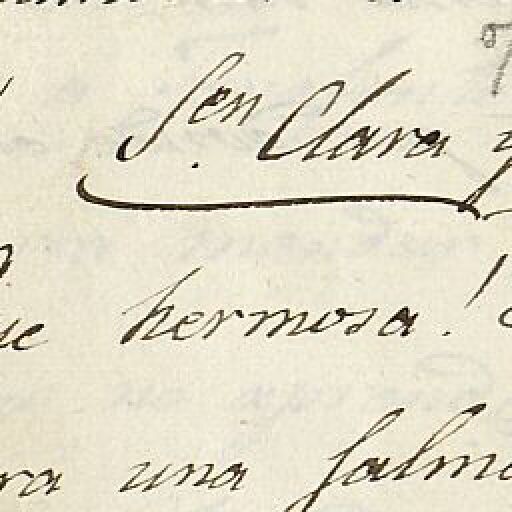 Sen. Clara y
ue hermosa!
ra una salmo